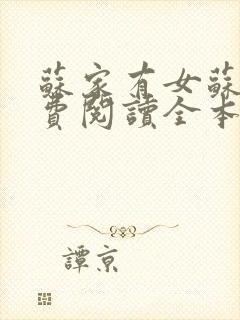 蘇家有女蘇
費閱讀全本
譚京